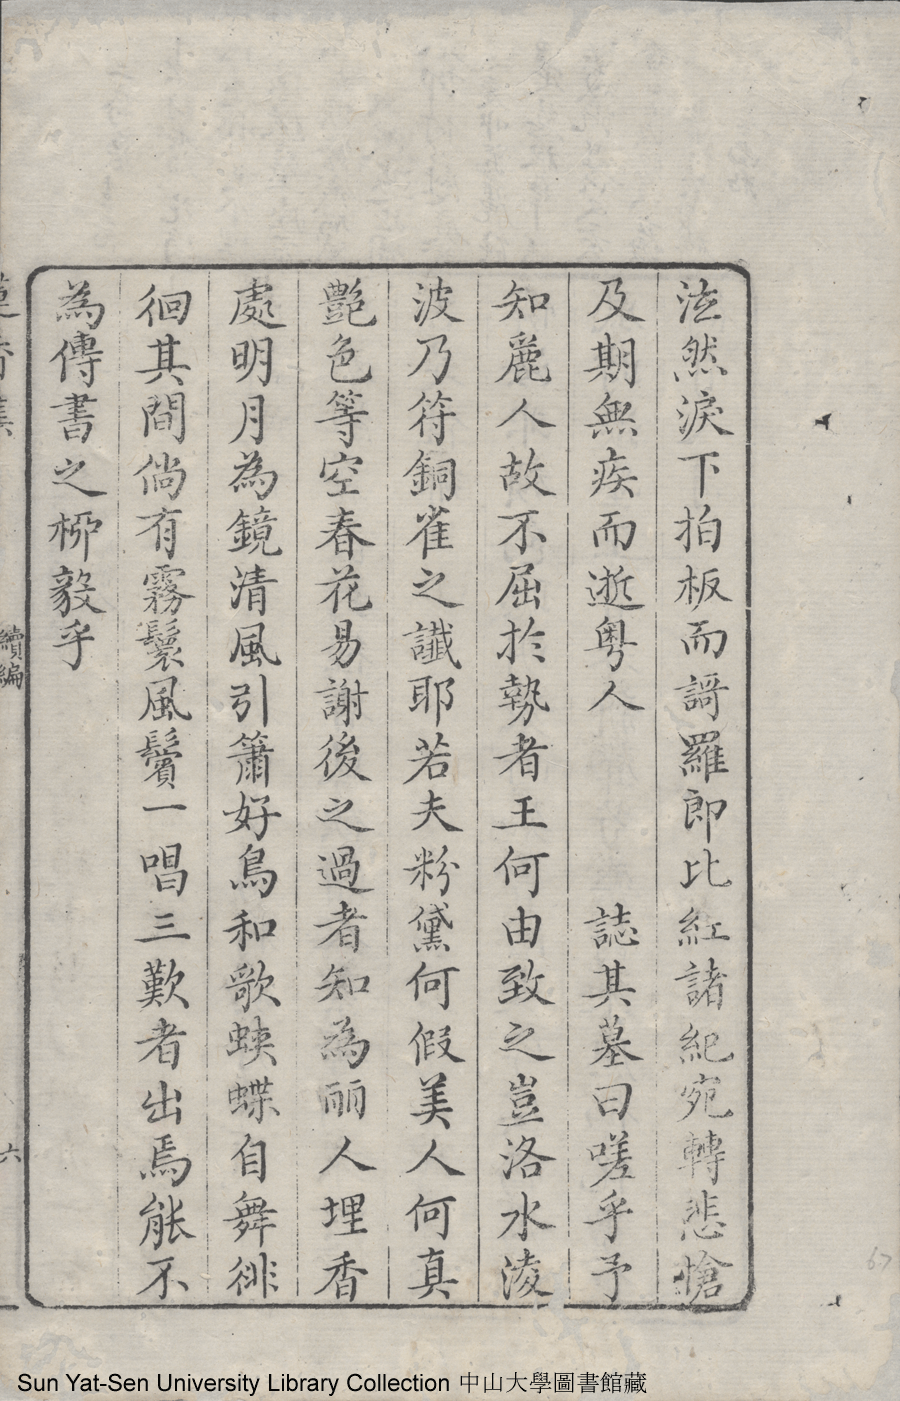 泫然淚下拍板而謌羅郎比紅諸紀宛轉悲愴
及期無疾而逝粤人 誌其墓曰嗟乎予
知麗人故不屈於勢者王何由致之豈洛水淩
波乃符銅雀之讖耶若夫粉黛何假美人何真
艷色等空春花易謝後之過者知為丽人埋香
處明月為鏡清風引簫好鳥和歌蛺蝶自舞徘
徊其間倘有霧鬟風鬢一唱三歎者出焉能不
為傳書之栁毅乎
續編
六
Sun Yat-Sen University Library Collection 中山大學圖書館藏